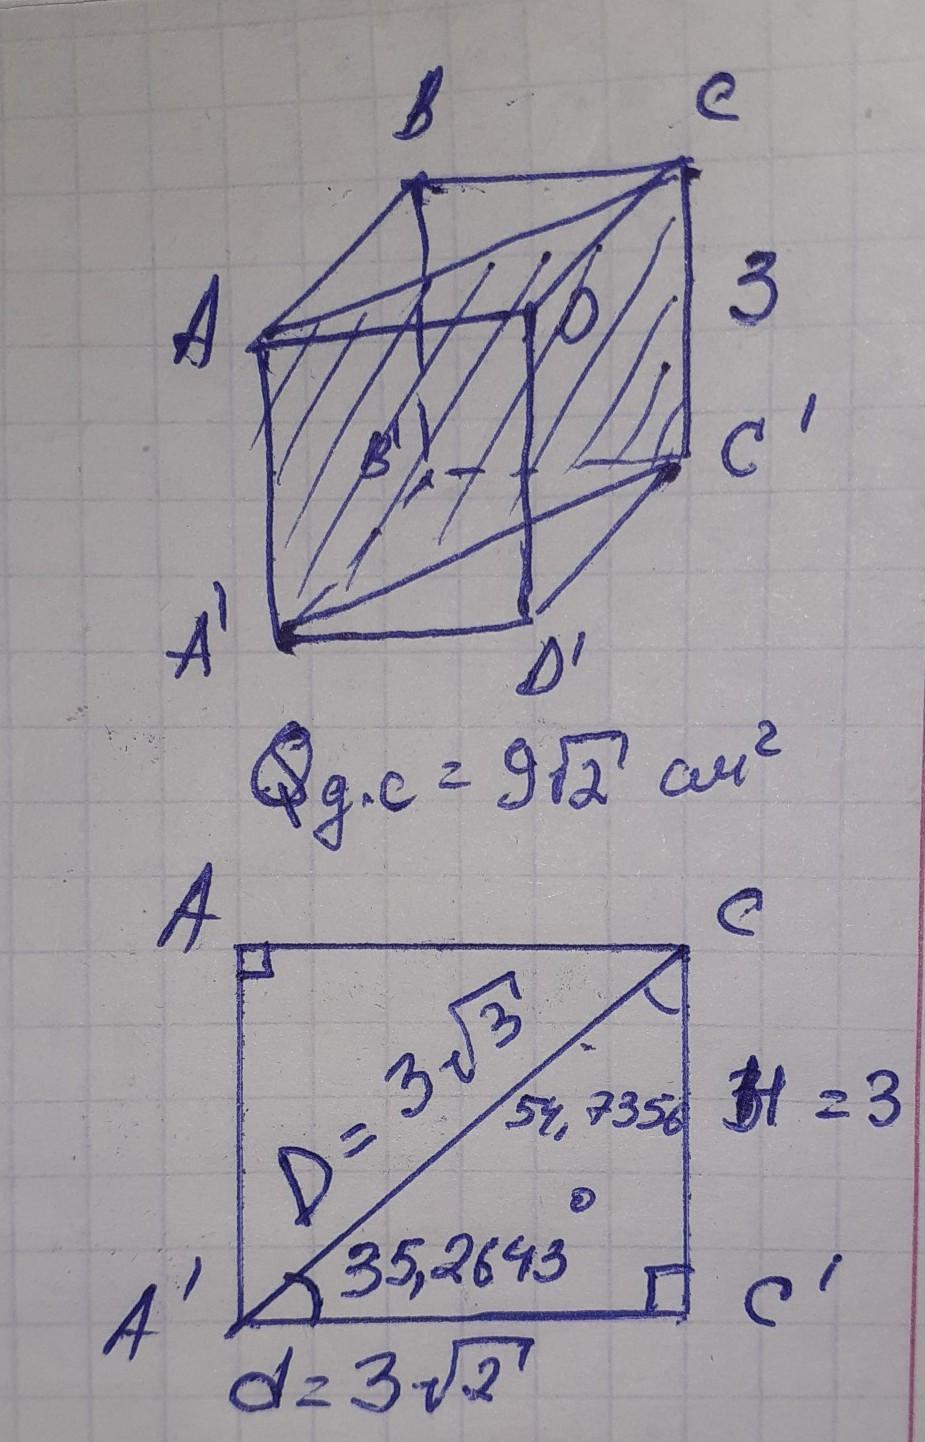 B C
A D 3
B' C'
A' D'
Qg.c = 9√2 см²
A C
D = 3√3
54,7356 H = 3
35,2643°
A' C'
d = 3√2